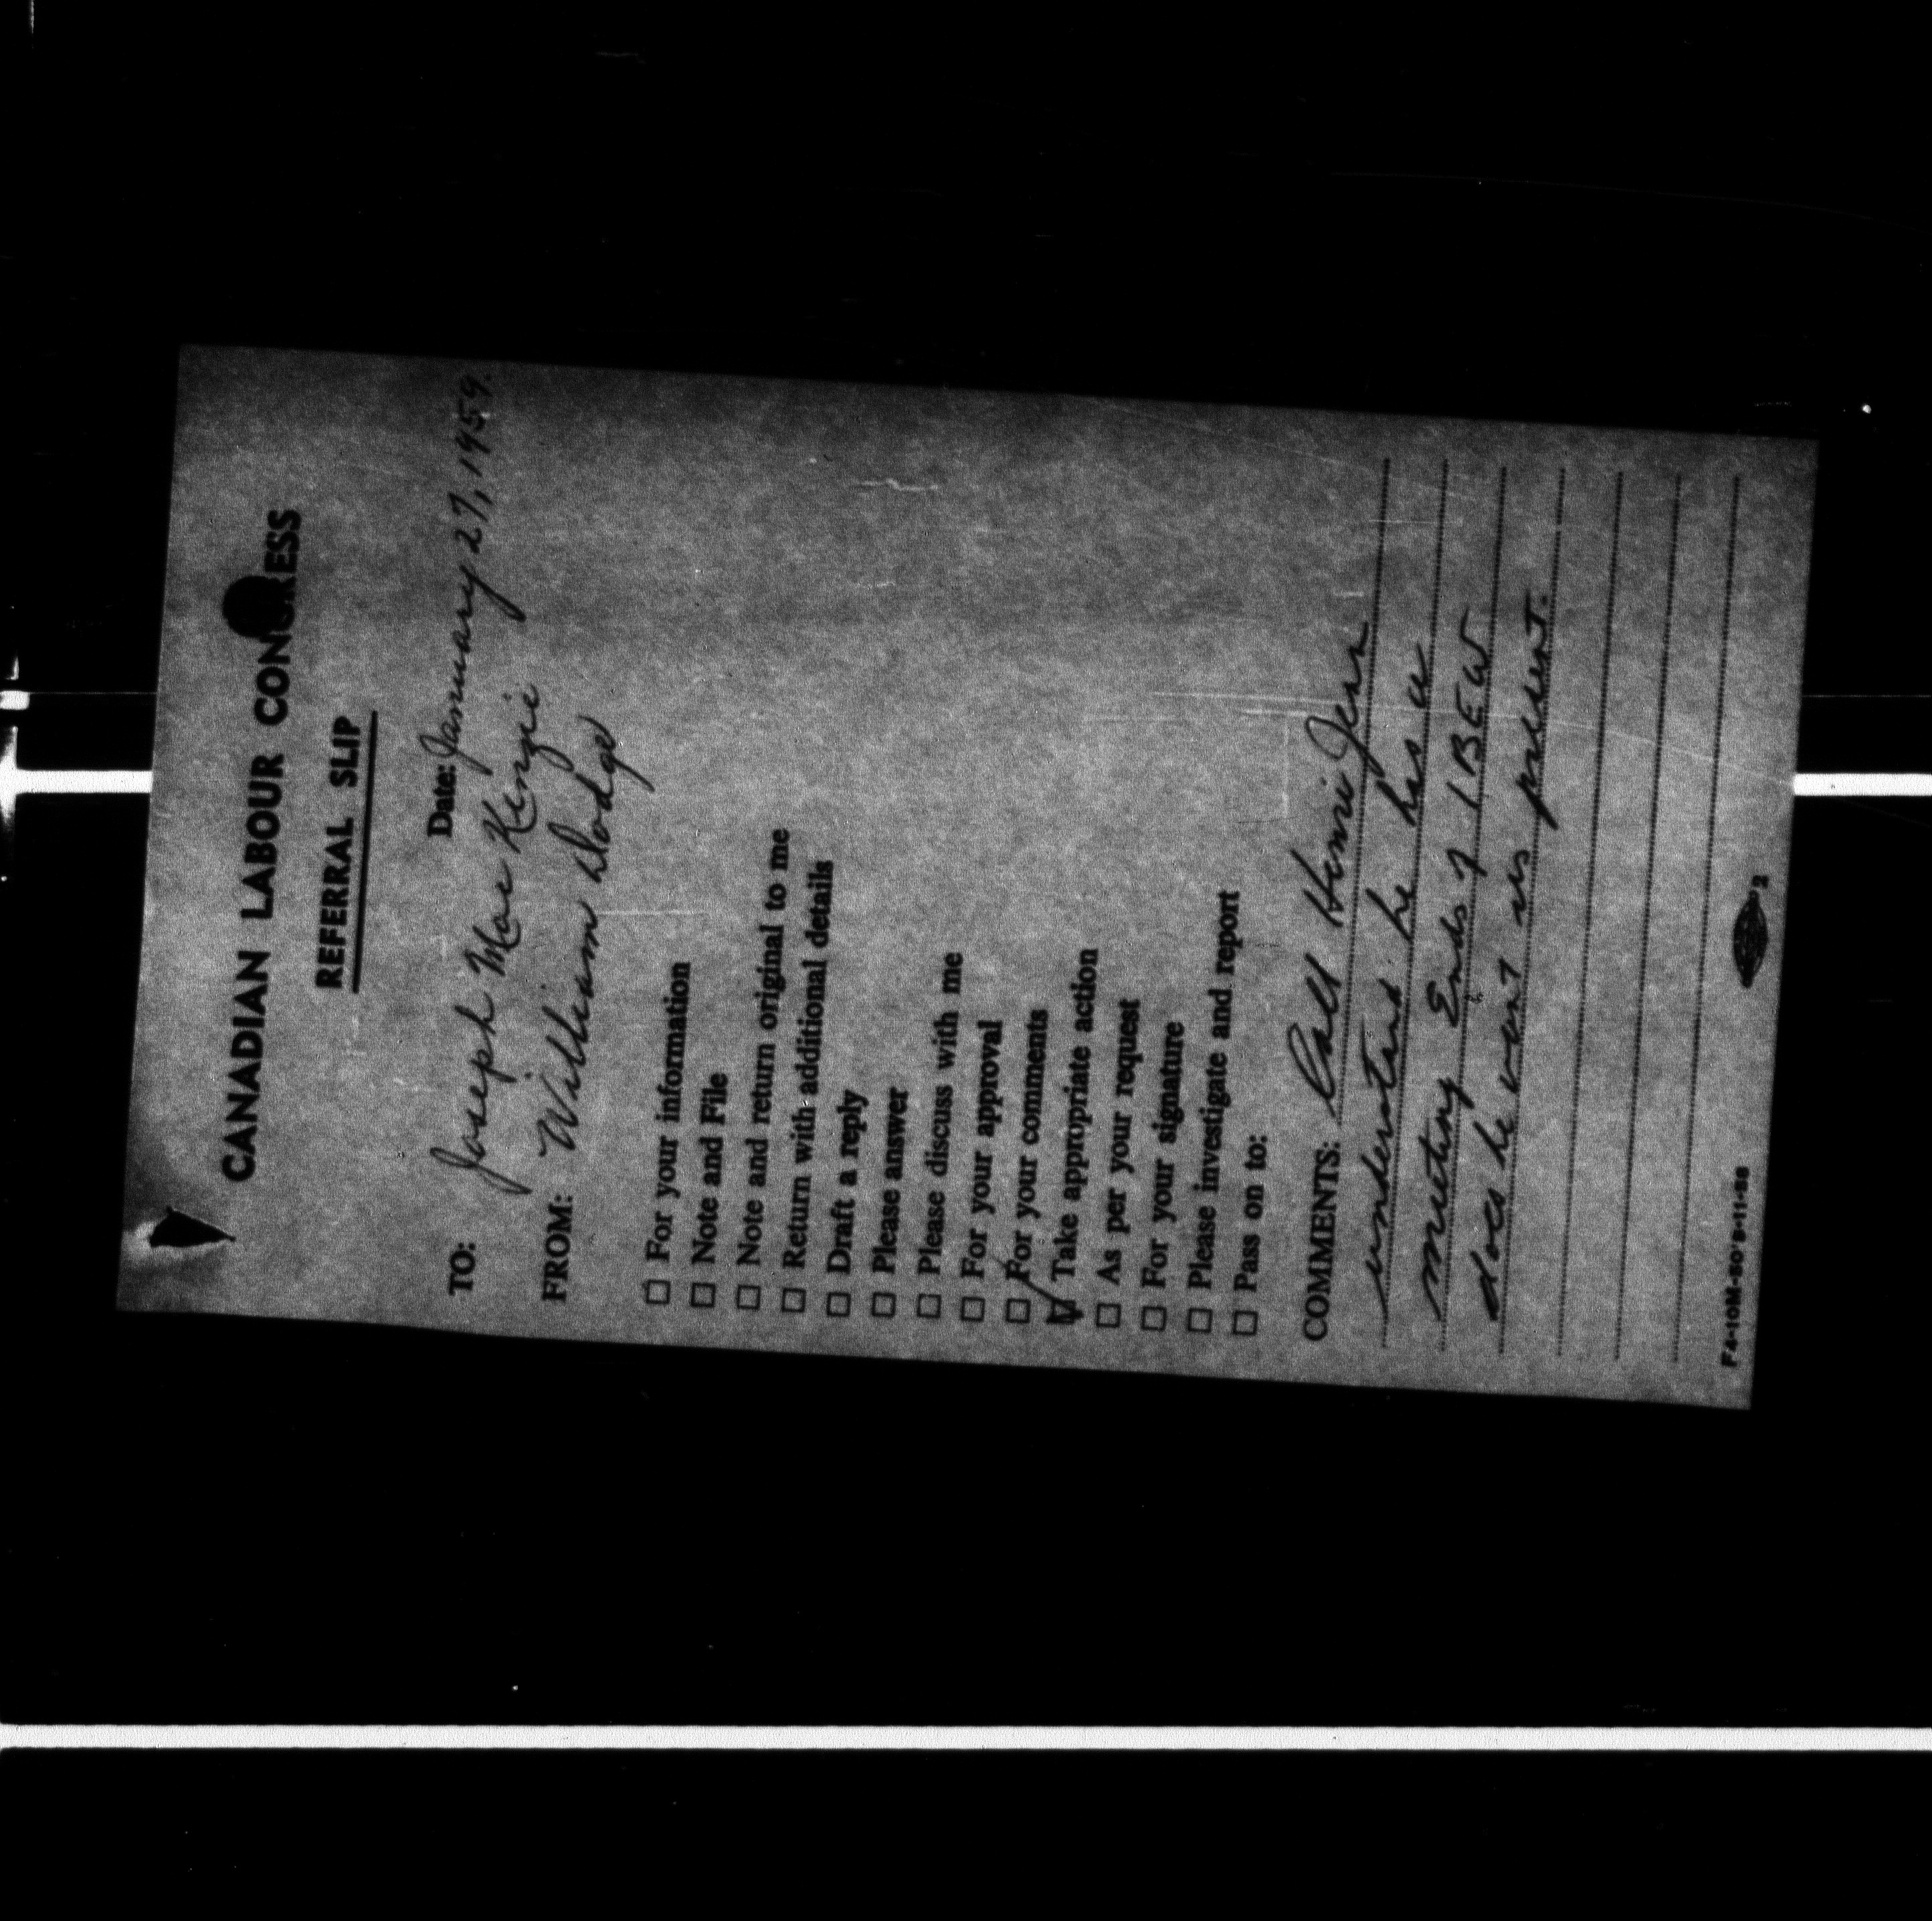 CANADIAN LABOUR CONGRESS
REFERRAL SLIP
Date: January 27, 1959.
TO: Joseph MacKenzie
FROM: William Dodge
☐ For your information
☐ Note and File
☐ Note and return original to me
☐ Return with additional details
☐ Draft a reply
☐ Please answer
☐ Please discuss with me
☐ For your approval
☐ For your comments
☑ Take appropriate action
☐ As per your request
☐ For your signature
☐ Please investigate and report
☐ Pass on to:
COMMENTS: Call Henri
understand he has a
meeting Ends of IBEW
does he want us present.
F4-10M-50's-11-58
2